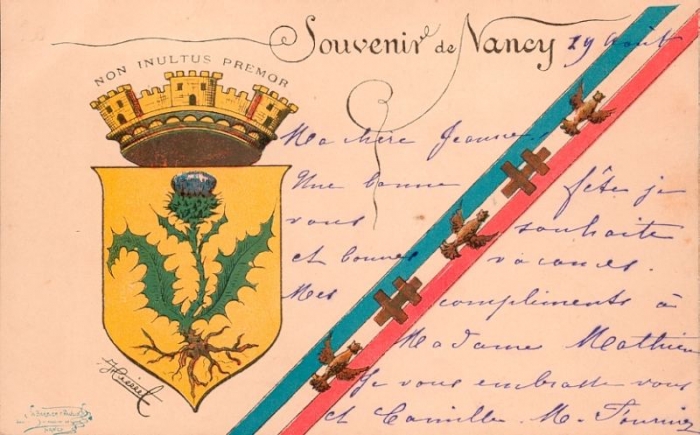 Souvenir de Nancy 29 août
NON INULTUS PREMOR
Ma chère Jeanne
Une bonne fête je
vous souhaite
et bonnes vacances.
Mes compliments à
Madame Mathieu
Je vous embrasse vous
et Camille. M. Fournier